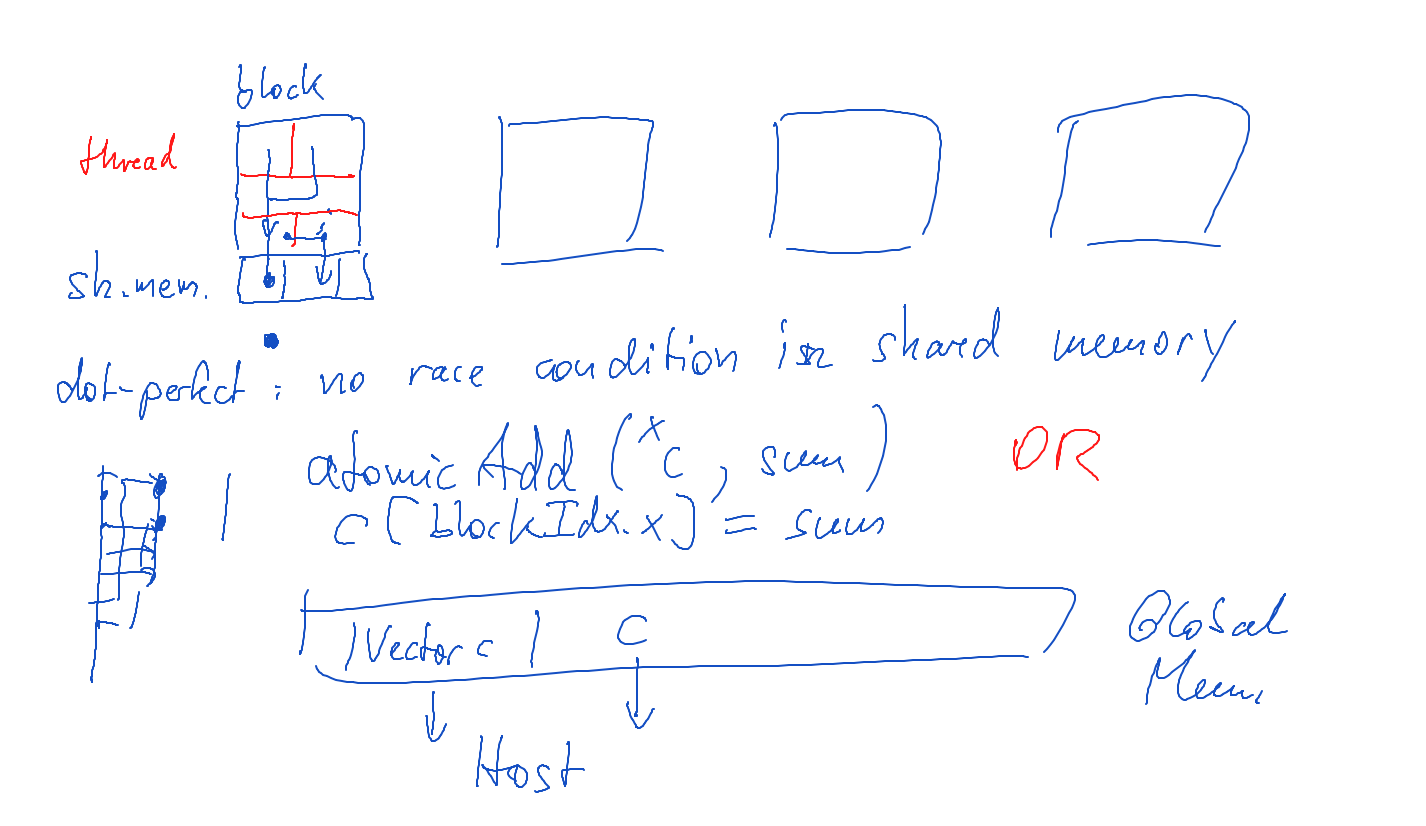 block
thread
sh.mem.
dot-perfect : no race condition in shared memory
atomic Add (*c, sum) OR
c[blockIdx.x] = sum
Vector c | C
Global
Mem.
Host